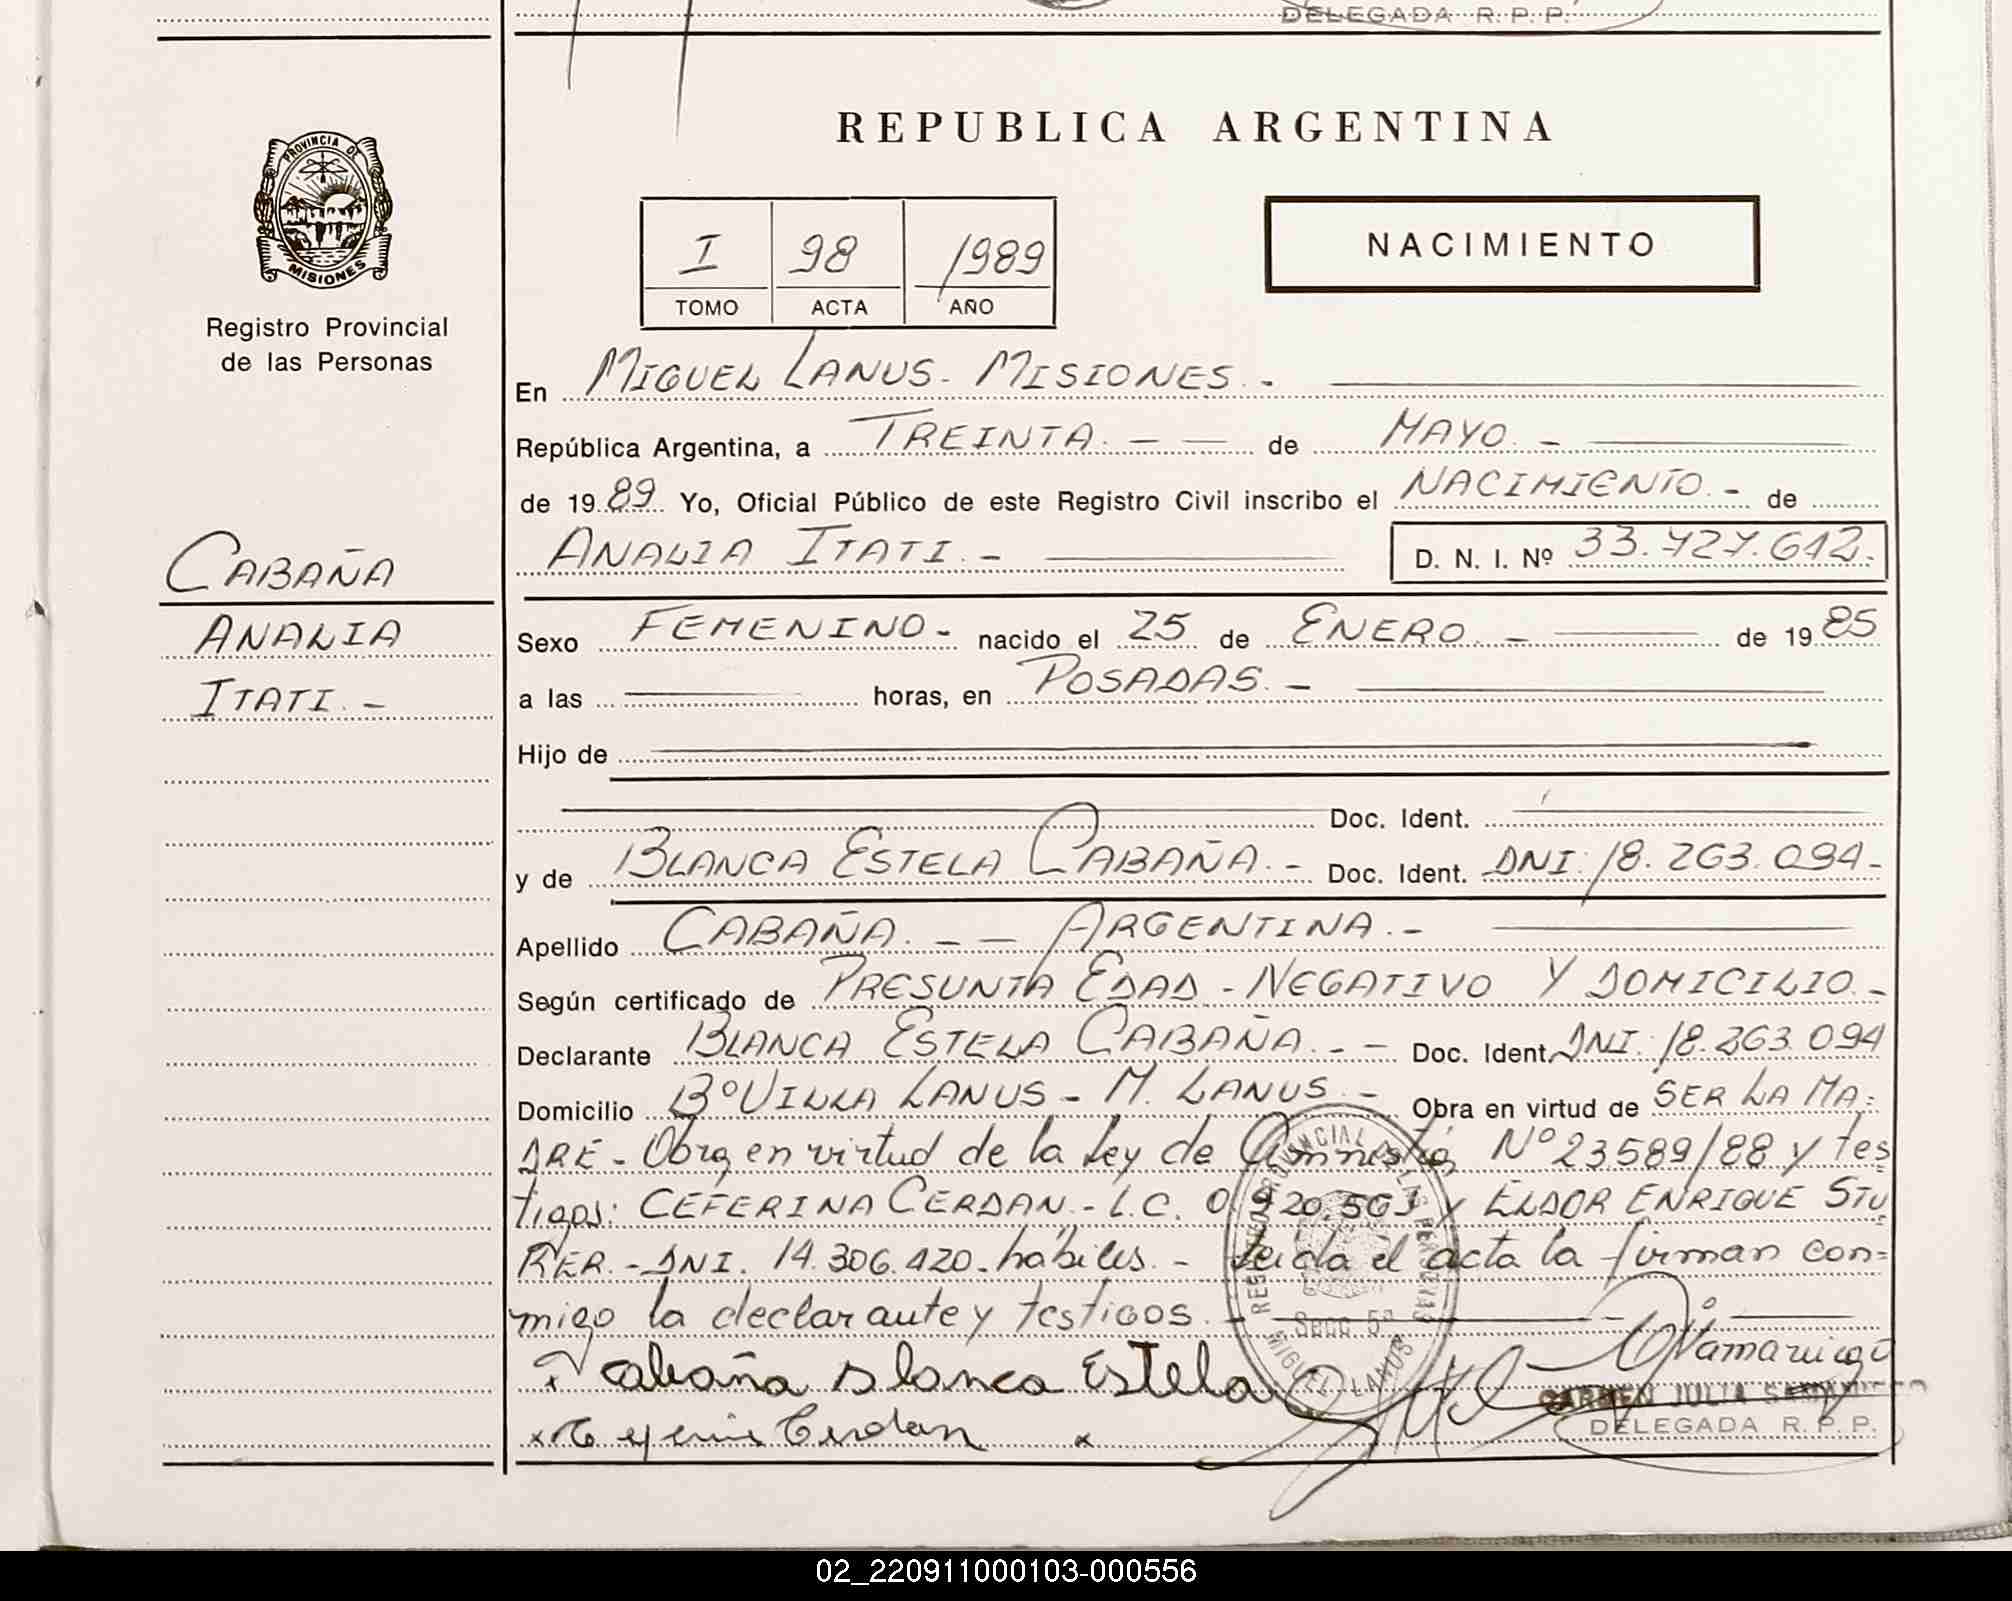 DELEGADA R. P. P.
PROVINCIA DE
MISIONES
Registro Provincial
de las Personas
CABAÑA
ANALIA
ITATI. -
REPUBLICA ARGENTINA
I 98 1989
TOMO ACTA AÑO
NACIMIENTO
En MIGUEL LANUS. MISIONES. -
República Argentina, a TREINTA. - - de MAYO. -
de 1989 Yo, Oficial Público de este Registro Civil inscribo el NACIMIENTO. - de
ANALIA ITATI. - D. N. I. Nº 33.727.612.
Sexo FEMENINO- nacido el 25 de ENERO. - de 1985
a las horas, en POSADAS. -
Hijo de
Doc. Ident.
y de BLANCA ESTELA CABAÑA. - Doc. Ident. DNI. 18.263.094-
Apellido CABAÑA. - - ARGENTINA. -
Según certificado de PRESUNTA EDAD - NEGATIVO Y DOMICILIO. -
Declarante BLANCA ESTELA CABAÑA. - - Doc. Ident. DNI. 18.263.094
Domicilio Bº VILLA LANUS - M. LANUS. - Obra en virtud de SER LA MA=
DRE - Obra en virtud de la ley de Amnistia Nº 23589/88 y tes
tigos: CEFERINA CERDAN. - L.C. y ELDOR ENRIQUE STU
RER. - DNI. 14.306.420. hábiles. - Leida el acta la firman con=
migo la declarante y testigos. -
REGISTRO PROVINCIAL DE LAS PERSONAS
Secc. 5ª
MIGUEL LANUS
x Cabaña Blanca Estela
x Cerdan x
CARMEN JULIA SAMANIEGO
DELEGADA R. P. P.
02_220911000103-000556